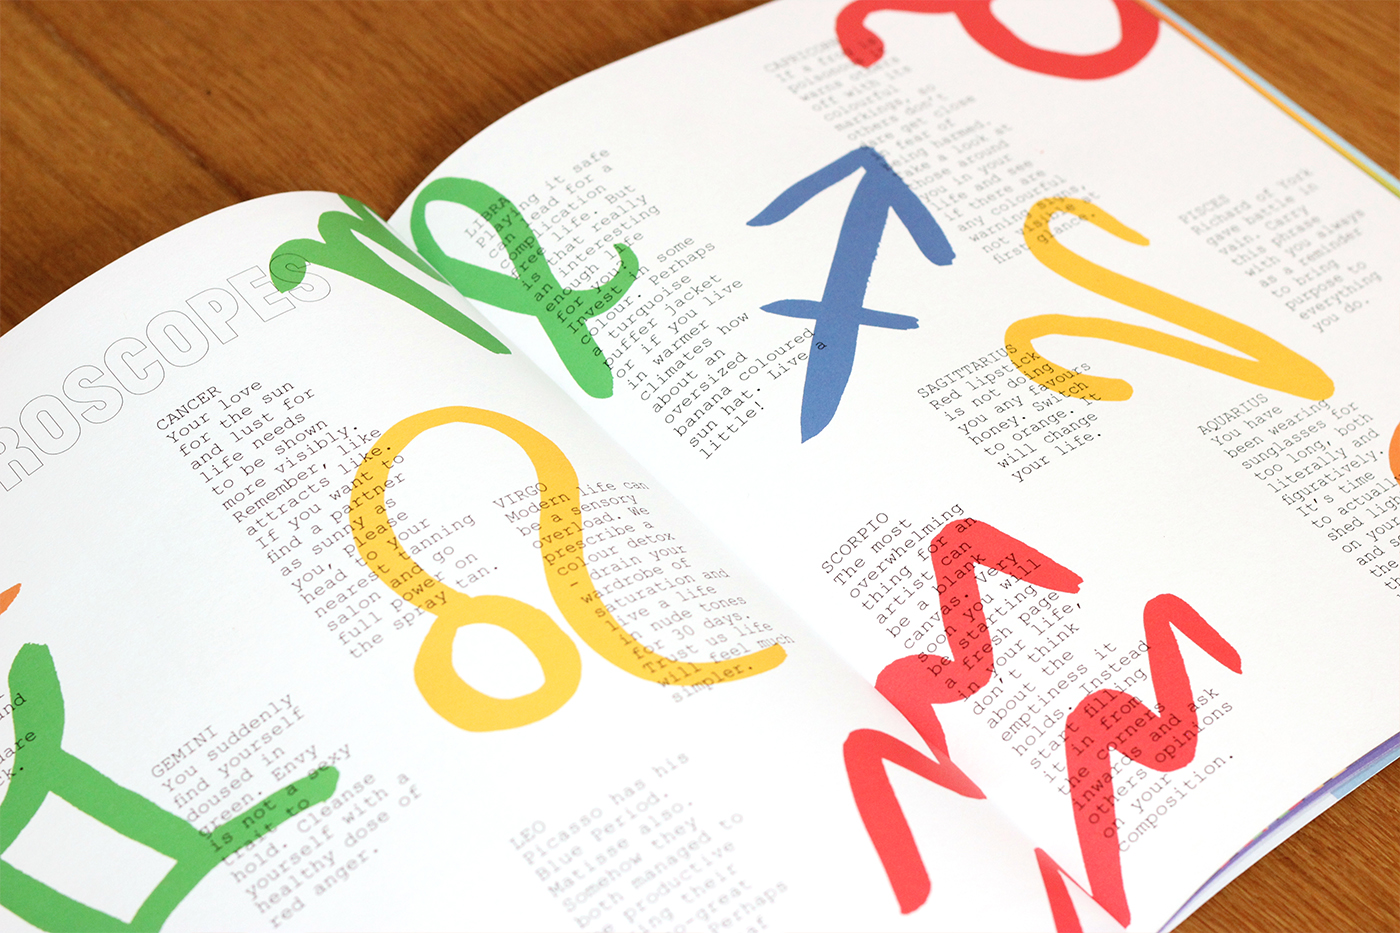 ROSCOPES
CANCER
Your love
for the sun
and lust for
life needs
to be shown
more visibly.
Remember, like
attracts like.
If you want to
find a partner
as sunny as
you, please
head to your
nearest tanning
salon and go
full power on
the spray tan.
GEMINI
You suddenly
find yourself
doused in
green. Envy
is not a sexy
trait to
hold. Cleanse
yourself with a
healthy dose of
red anger.
VIRGO
Modern life can
be a sensory
overload. We
prescribe a
colour detox
- drain your
wardrobe of
saturation and
live a life
in nude tones
for 30 days.
Trust us life
will feel much
simpler.
LEO
Picasso has his
Blue Period.
Matisse also.
Somehow they
both managed to
productive
ing their
so-great
Perhaps
LIBRA
Playing it safe
can lead for a
complication
free life. But
is that really
an interesting
enough life
for you?
Invest in some
colour. Perhaps
a turquoise
puffer jacket
or if you live
in warmer
climates how
about an
oversized
banana coloured
sun hat. Live a
little!
CAPRICORN
If a frog is
poisonous it
warns others
off with its
colourful
markings, so
others don't
dare get close
in fear of
being harmed.
Take a look at
those around
you in your
life and see
if there are
any colourful
warning signs,
not visible at
first glance.
SAGITTARIUS
Red lipstick
is not doing
you any favours
honey. Switch
to orange. it
will change
your life.
SCORPIO
The most
overwhelming
thing for an
artist can
be a blank
canvas. Very
soon you will
be starting
a fresh page
in your life,
don't think
about the
emptiness it
holds. Instead
start filling
it in from
the corners
inwards and ask
others opinions
on your
composition.
PISCES
Richard of York
gave battle in
vain. Carry
this phrase always
with you
as a reminder
to bring
purpose to
everything
you do.
AQUARIUS
You have
been wearing
sunglasses for
too long, both
literally and
figuratively.
It's time
to actually
shed lig
on your
and s
the